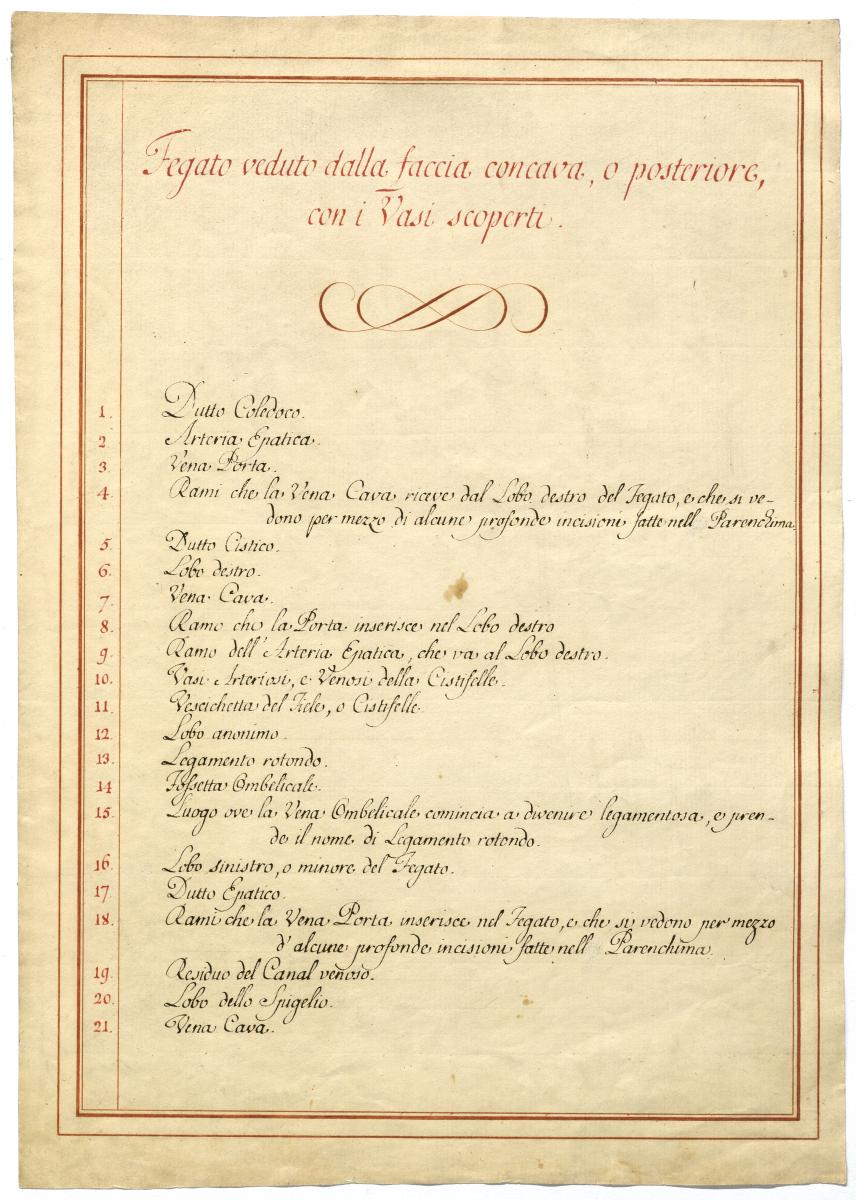 Fegato veduto dalla faccia concava, o posteriore,
con i Vasi scoperti.
1. Dutto Coledoco.
2. Arteria Epatica.
3. Vena Porta.
4. Rami che la Vena Cava riceve dal Lobo destro del Fegato, e che si ve-
dono per mezzo di alcune profonde incisioni fatte nell Parenchima.
5. Dutto Cistico.
6. Lobo destro.
7. Vena Cava.
8. Ramo che la Porta inserisce nel Lobo destro
9. Ramo dell'Arteria Epatica, che va al Lobo destro.
10. Vasi Arteriosi, e Venosi della Cistifelle.
11. Vescichetta del Fiele, o Cistifelle.
12. Lobo anonimo.
13. Legamento rotondo.
14 Fossetta Ombelicale.
15. Luogo ove la Vena Ombelicale comincia a divenire legamentosa, e pren-
de il nome di Legamento rotondo.
16. Lobo sinistro, o minore del Fegato.
17. Dutto Epatico.
18. Rami che la Vena Porta inserisce nel Fegato, e che si vedono per mezzo
d'alcune profonde incisioni fatte nell Parenchima.
19. Residuo del Canal venoso.
20. Lobo dello Spigelio.
21. Vena Cava.